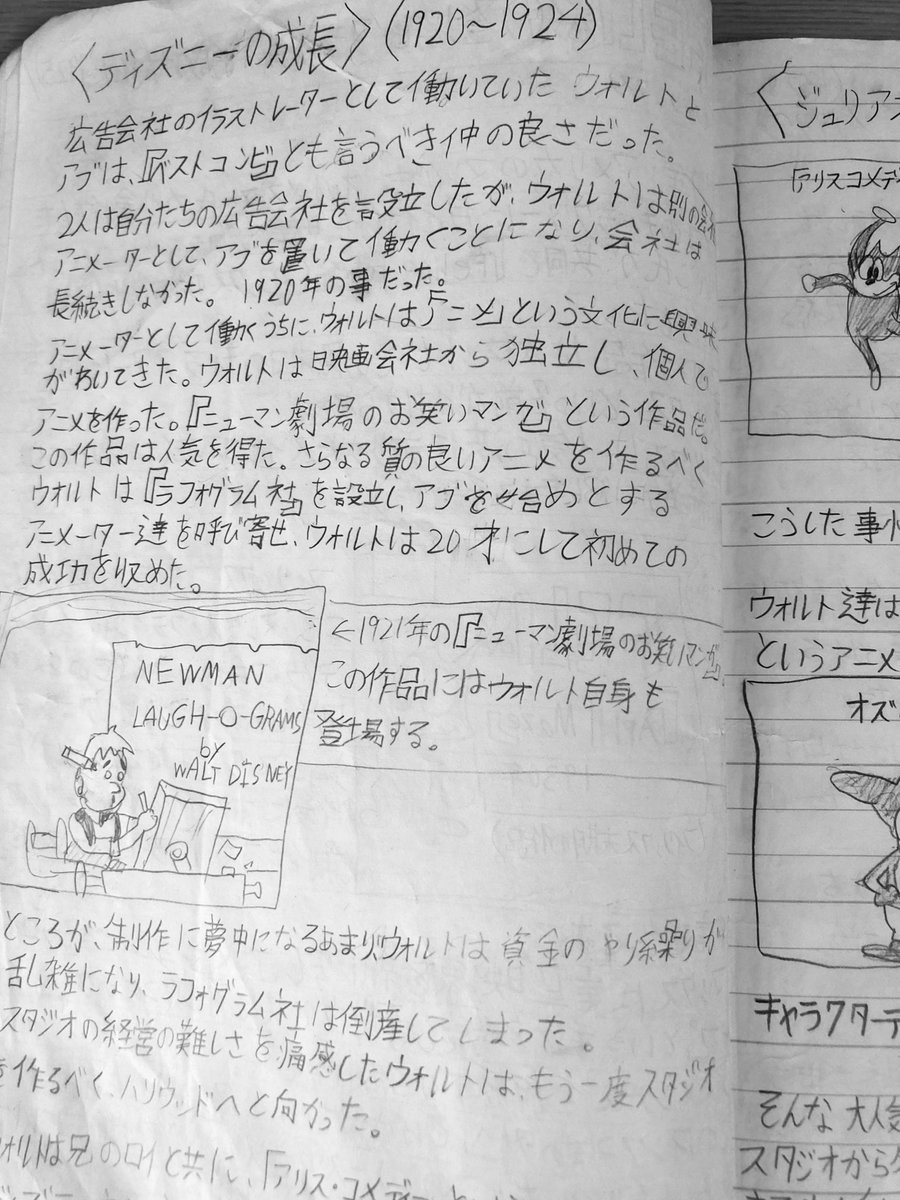 〈ディズニーの成長〉(1920〜1924)
広告会社のイラストレーターとして働いていた ウォルトと
アブは、『ベストコンビ』とも言うべき仲の良さだった。
2人は自分たちの広告会社を設立したが、ウォルトは別の会社
アニメーターとして、アブを置いて働くことになり、会社は
長続きしなかった。 1920年の事だった。
アニメーターとして働くうちに、ウォルトは「アニメ」という文化に興味
がわいてきた。ウォルトは映画会社から独立し、個人で
アニメを作った。『ニューマン劇場のお笑いマンガ』という作品だ。
この作品は人気を得た。さらなる質の良いアニメを作るべく
ウォルトは『ラフォグラム社』を設立し、アブを始めとする
アニメーター達を呼び寄せ、ウォルトは20才にして初めての
成功を収めた。
NEWMAN
LAUGH-O-GRAMS
by
WALT DISNEY
←1921年の『ニューマン劇場のお笑いマンガ』
この作品にはウォルト自身も
登場する。
ところが、制作に夢中になるあまり、ウォルトは資金のやり繰りが
乱雑になり、ラフォグラム社は倒産してしまった。
スタジオの経営の難しさを痛感したウォルトは、もう一度スタジオ
を作るべく、ハリウッドへと向かった。
ウォルトは兄のロイと共に、「アリス・コメディー
〈ジュリアス
『アリスコメデ
こうした事情
ウォルト達は
というアニメ
オズ
キャラクターデ
そんな大人気
スタジオから